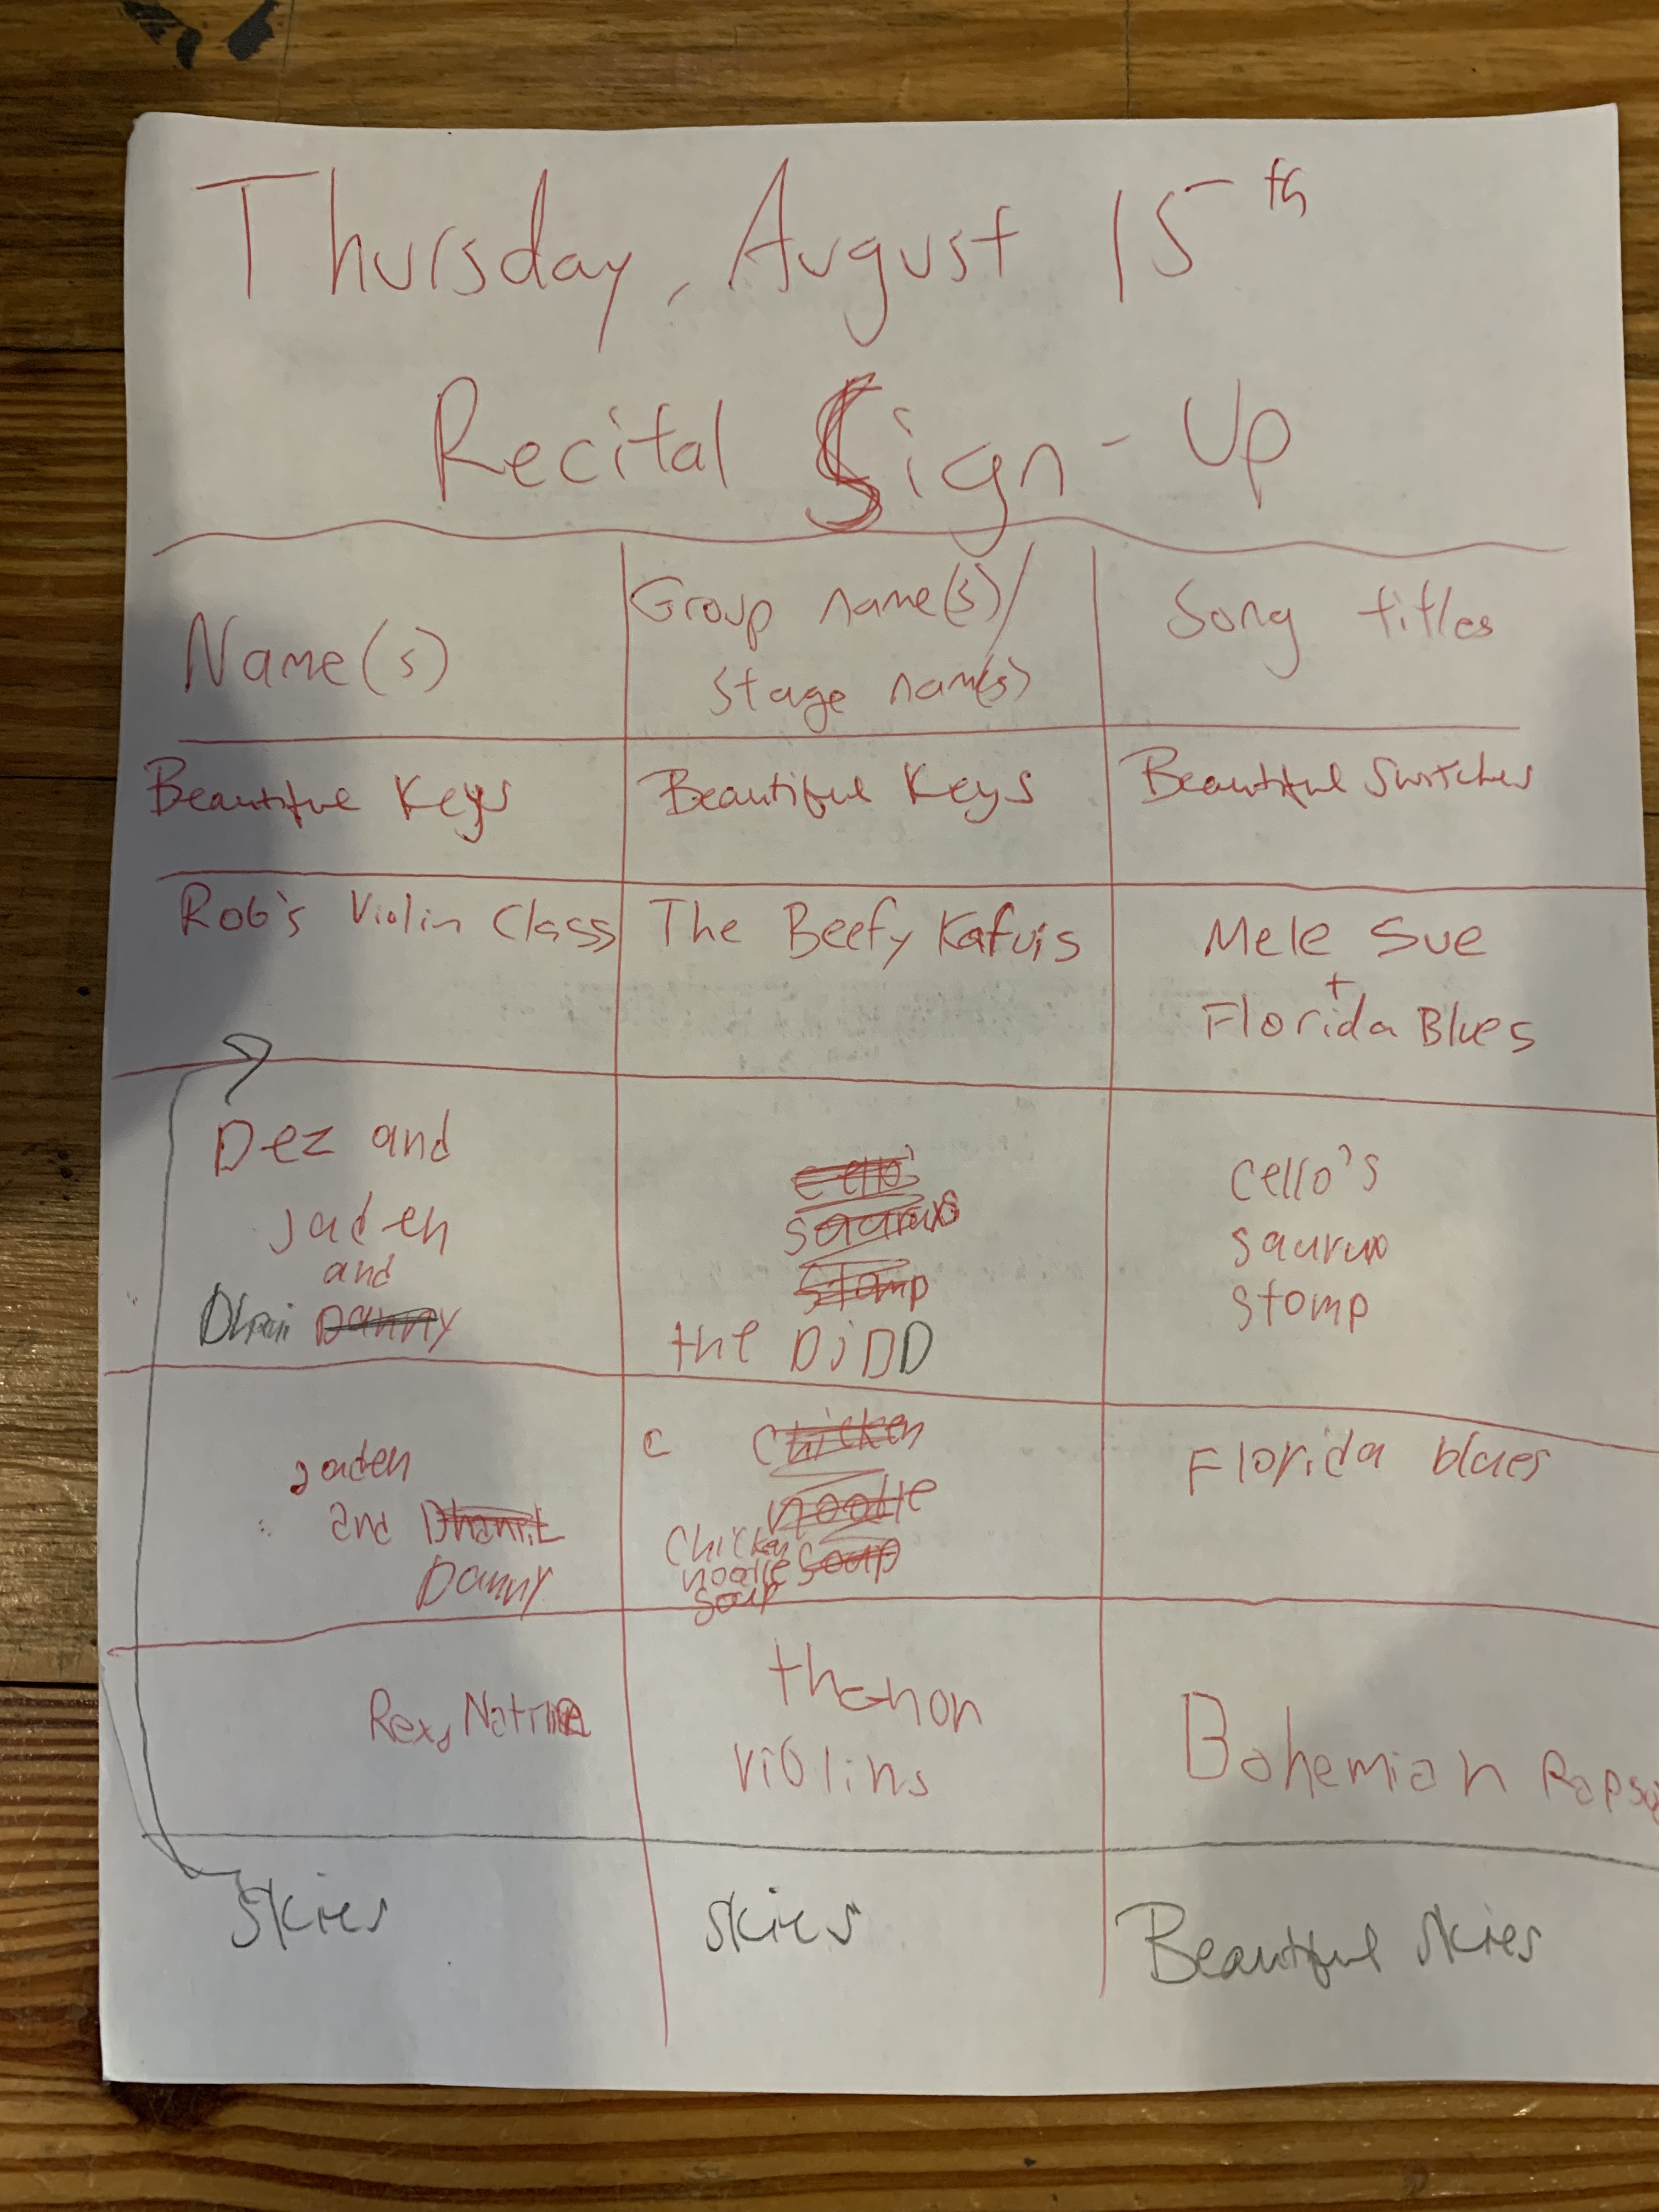 Thursday, August 15th
Recital Sign-Up
Name(s)
Group name(s)/
stage name(s)
Song titles
Beautiful Keys
Beautiful Keys
Beautiful Switches
Rob's Violin Class
The Beefy Kafuis
Mele Sue
+
Florida Blues
Dez and
jaden
and
Danny
cello's
saurus
stomp
the DjDD
cello's
saurus
stomp
jaden
and
Danny
c
Chicken
noodle
soup
Chicken
noodle
soup
Florida blues
Rex,
violins
Bohemian Rapso
Skies
Skies
Beautiful Skies